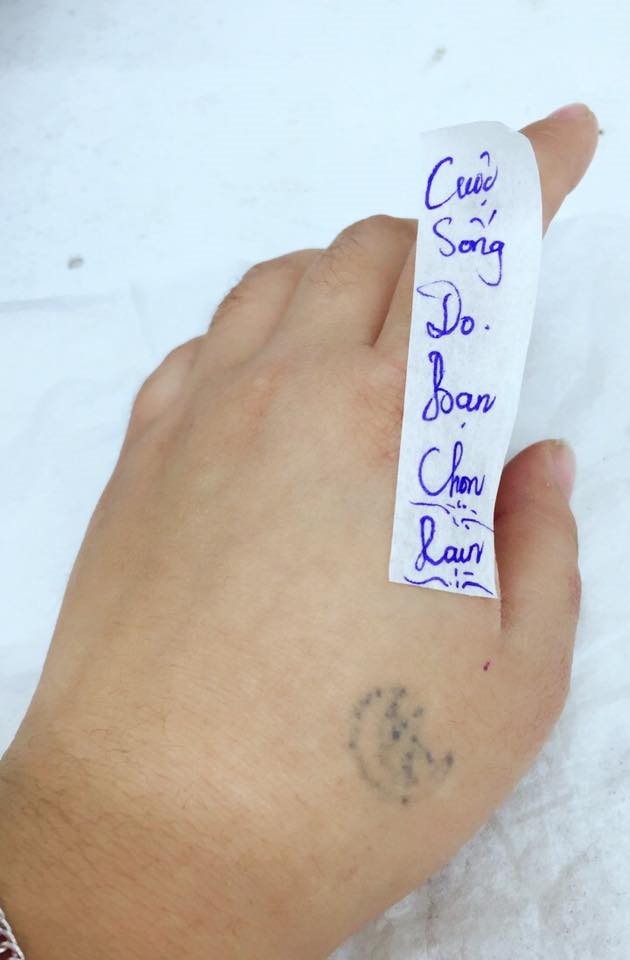 Cuộc
Sống
Do.
Bạn
Chọn
Rain